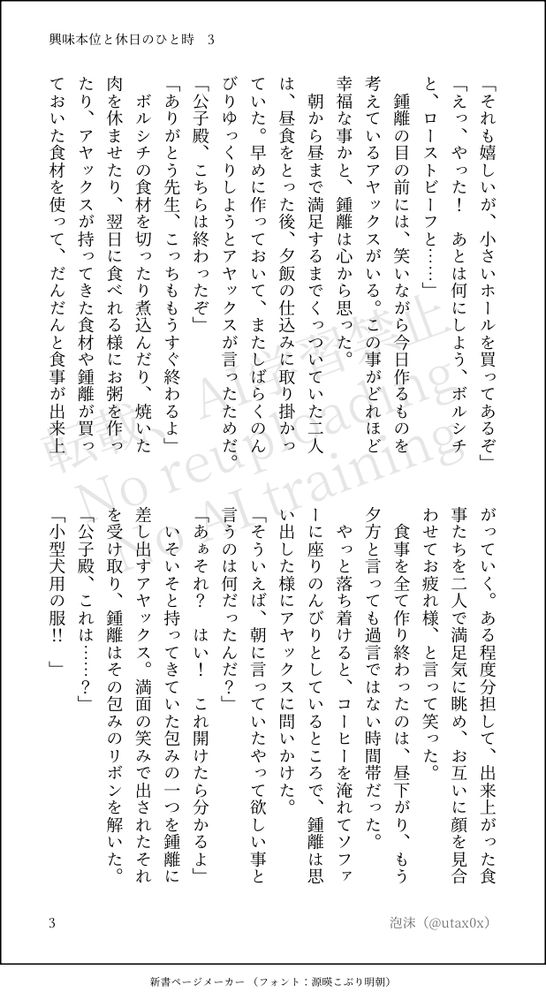 興味本位と休日のひと時　3
「それも嬉しいが、小さいホールを買ってあるぞ」
「えっ、やった！　あとは何にしよう、ボルシチ
と、ローストビーフと……」
　鍾離の目の前には、笑いながら今日作るものを
考えているアヤックスがいる。この事がどれほど
幸福な事かと、鍾離は心から思った。
　朝から昼まで満足するまでくっついていた二人
は、昼食をとった後、夕飯の仕込みに取り掛かっ
ていた。早めに作っておいて、またしばらくのん
びりゆっくりしようとアヤックスが言ったためだ。
「公子殿、こちらは終わったぞ」
「ありがとう先生、こっちももうすぐ終わるよ」
　ボルシチの食材を切ったり煮込んだり、焼いた
肉を休ませたり、翌日に食べれる様にお粥を作っ
たり、アヤックスが持ってきた食材や鍾離が買っ
ておいた食材を使って、だんだんと食事が出来上
がっていく。ある程度分担して、出来上がった食
事たちを二人で満足気に眺め、お互いに顔を見合
わせてお疲れ様、と言って笑った。
　食事を全て作り終わったのは、昼下がり、もう
夕方と言っても過言ではない時間帯だった。
　やっと落ち着けると、コーヒーを淹れてソファ
ーに座りのんびりとしているところで、鍾離は思
い出した様にアヤックスに問いかけた。
「そういえば、朝に言っていたやって欲しい事と
言うのは何だったんだ？」
「あぁそれ？　はい！　これ開けたら分かるよ」
　いそいそと持ってきていた包みの一つを鍾離に
差し出すアヤックス。満面の笑みで出されたそれ
を受け取り、鍾離はその包みのリボンを解いた。
「公子殿、これは……？」
「小型犬用の服!!　」
転載、AI学習禁止
No reuploading
No AI training
3
泡沫（@utax0x）
新書ページメーカー（フォント：源暎こぶり明朝）